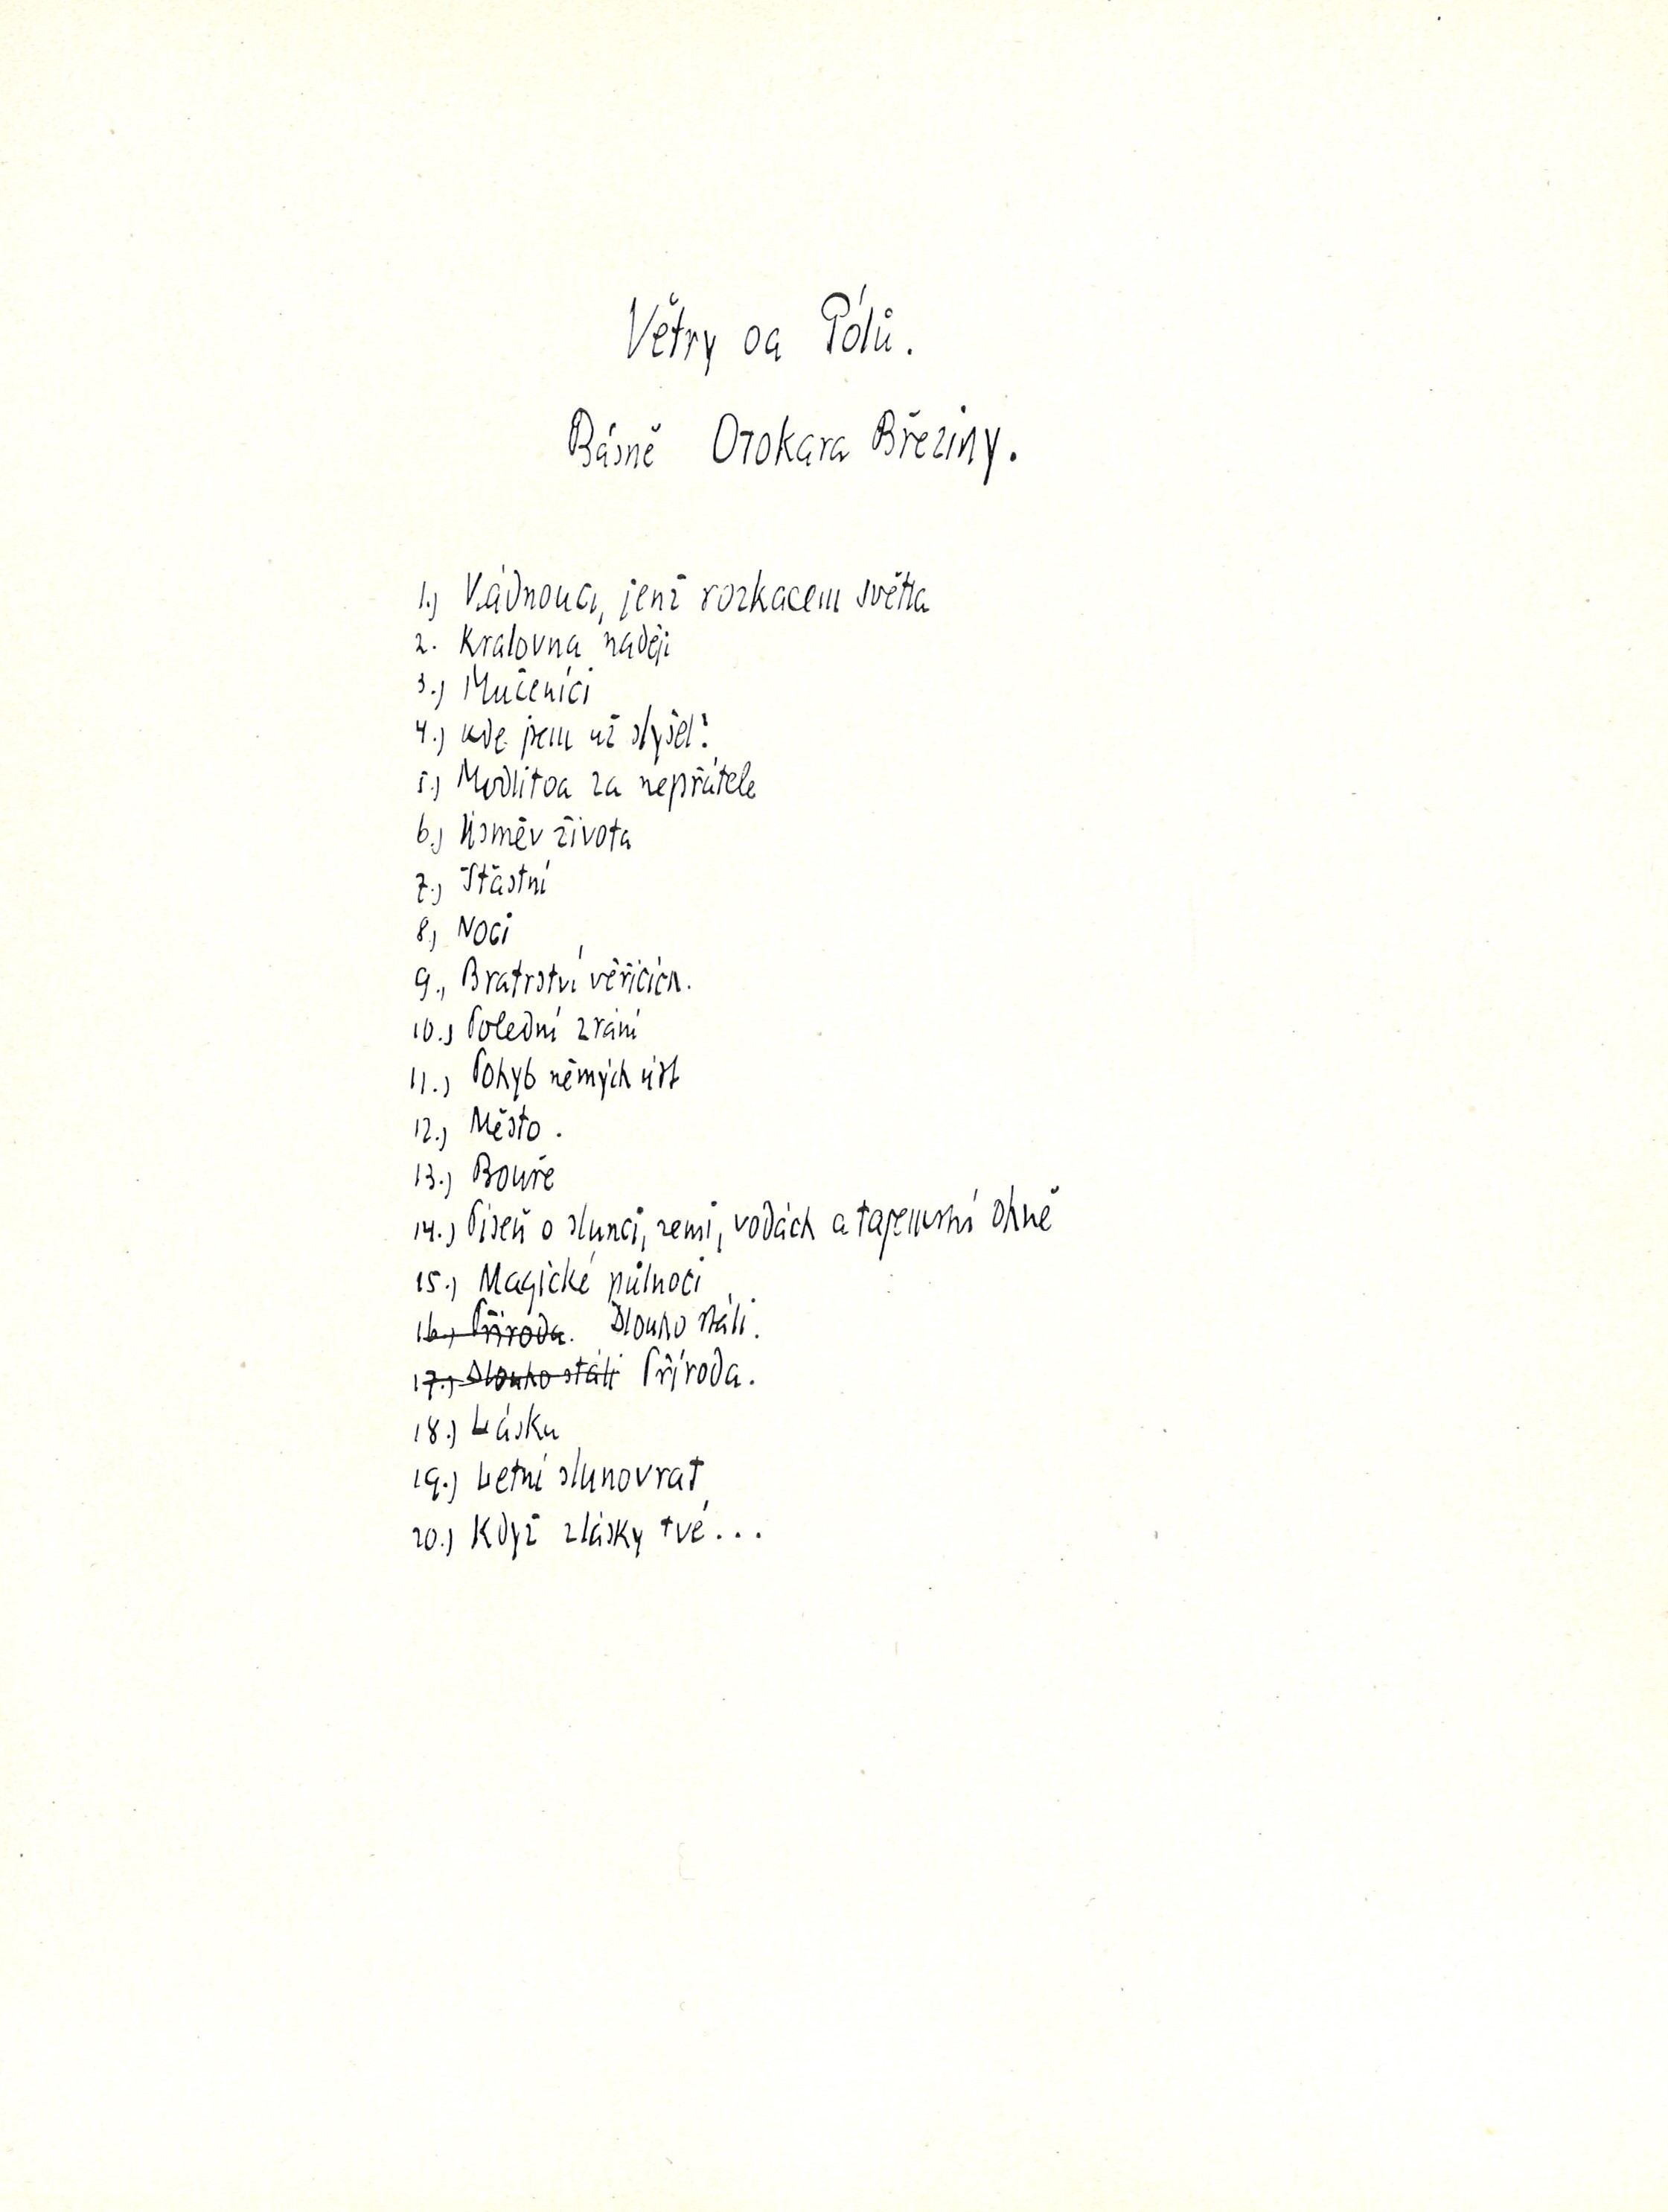 Větry od Pólů.
Básně Otokara Březiny.
1.) Vládnoucí, jenž rozkazem světla
2. Královna nadějí
3.) Mučeníci
4.) Kde jsem už slyšel?
5.) Modlitba za nepřátele
6.) Úsměv života
7.) Šťastní
8.) Noci
9., Bratrství věřících.
10.) Polední zrání
11.) Pohyb němých úst
12.) Město.
13.) Bouře
14.) Píseň o slunci, zemi, vodách a tajemství ohně
15.) Magické půlnoci
16.) Příroda. Dlouho stáli.
17.) Dlouho stáli Příroda.
18.) Láska
19.) Letní slunovrat
20.) Když z lásky tvé...